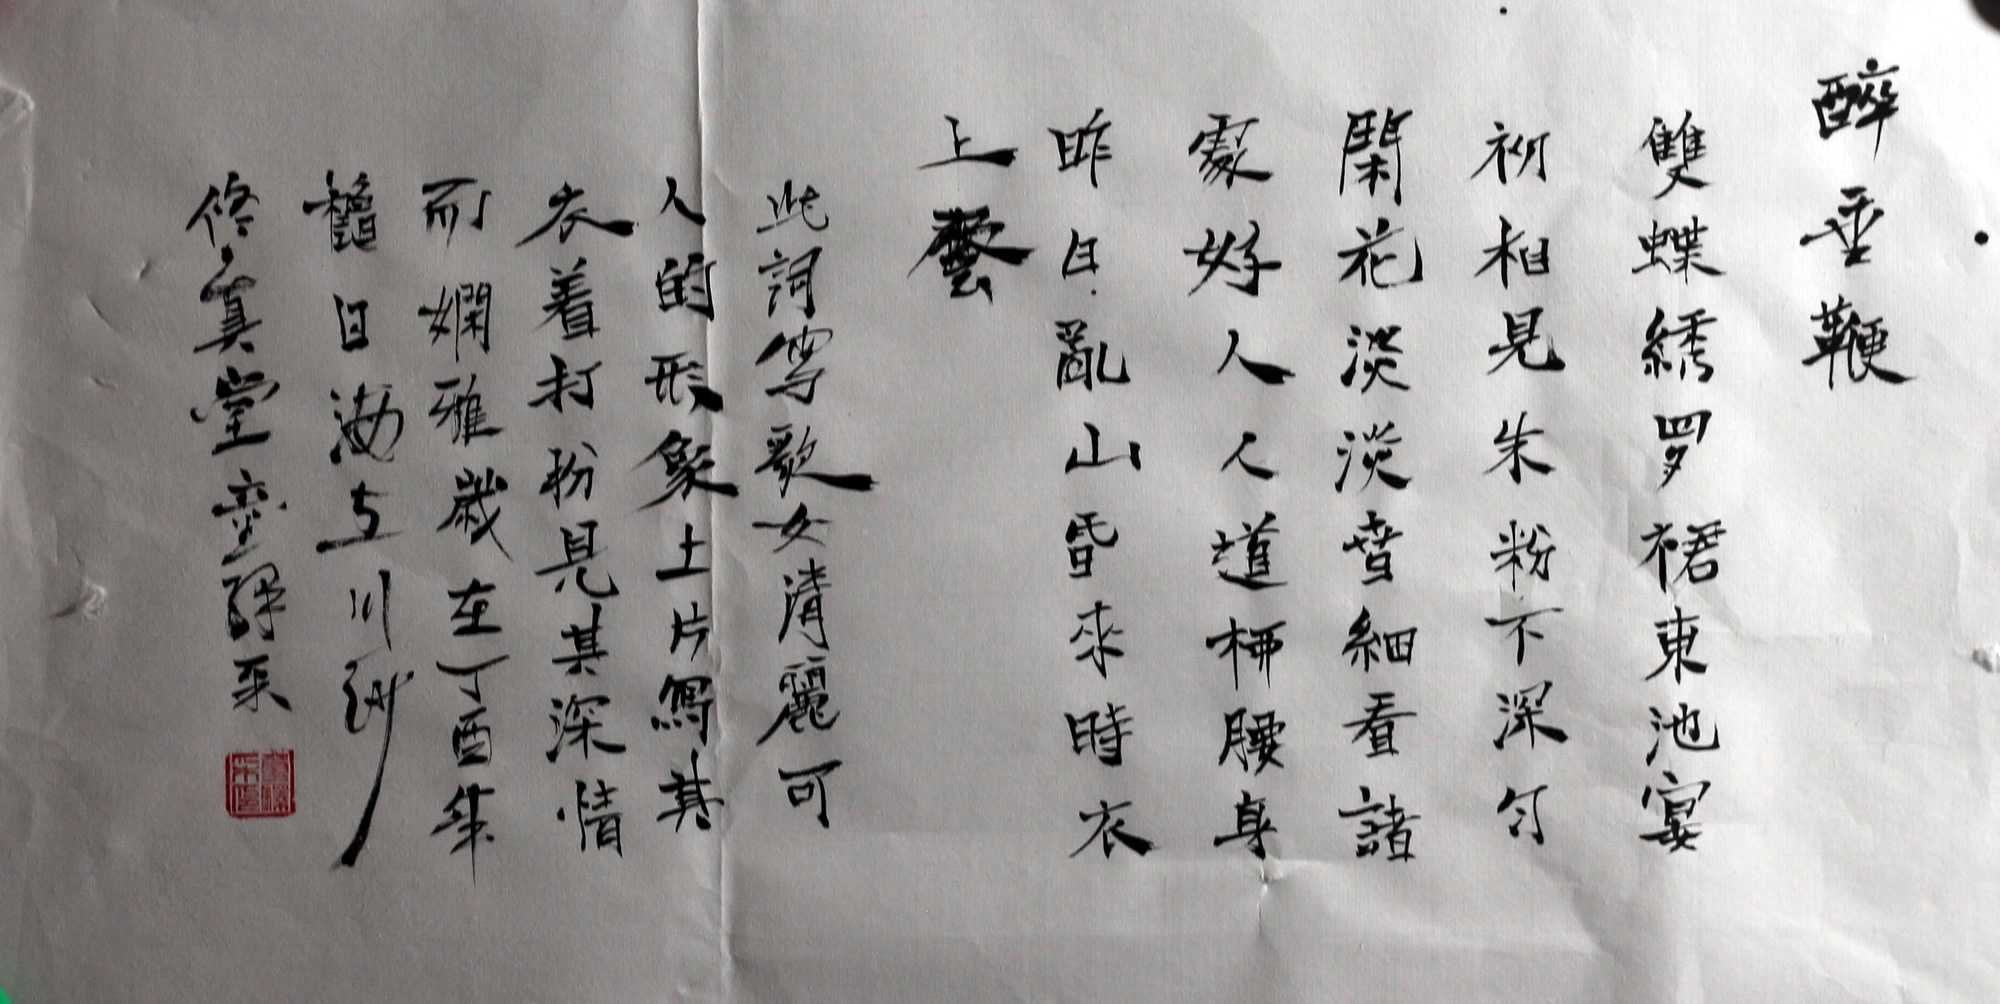 醉垂鞭
雙蝶綉罗裙東池宴
初相見朱粉不深匀
閑花淡淡春細看諸
處好人人道柳腰身
昨日亂山昏來時衣
上雲
此詞寫歌女清麗可
人的形象上片寫其
衣着打扮見其深情
而嫻雅歲在丁酉年
日
修真堂